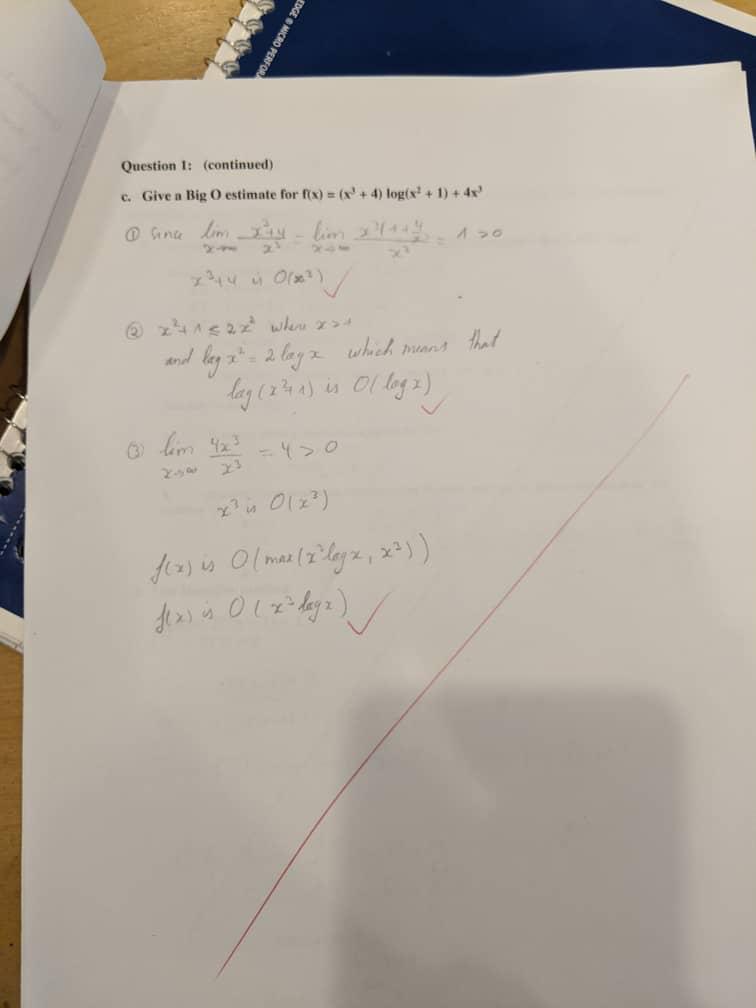 EDGE @ MICRO PERFOR
Question 1: (continued)
c. Give a Big O estimate for f(x) = (x³ + 4) log(x² + 1) + 4x³
① Since lim x→∞ x³+4 / x³ = lim x→∞ x³(1+4/x³) / x³ = 1 > 0
x³+4 is O(x³)
② x²+1 ≤ 2x² where x>1
and log x² = 2 log x which means that
log(x²+1) is O(log x)
③ lim x→∞ 4x³ / x³ = 4 > 0
x³ is O(x³)
f(x) is O(max(x³logx, x³))
f(x) is O(x³logx)